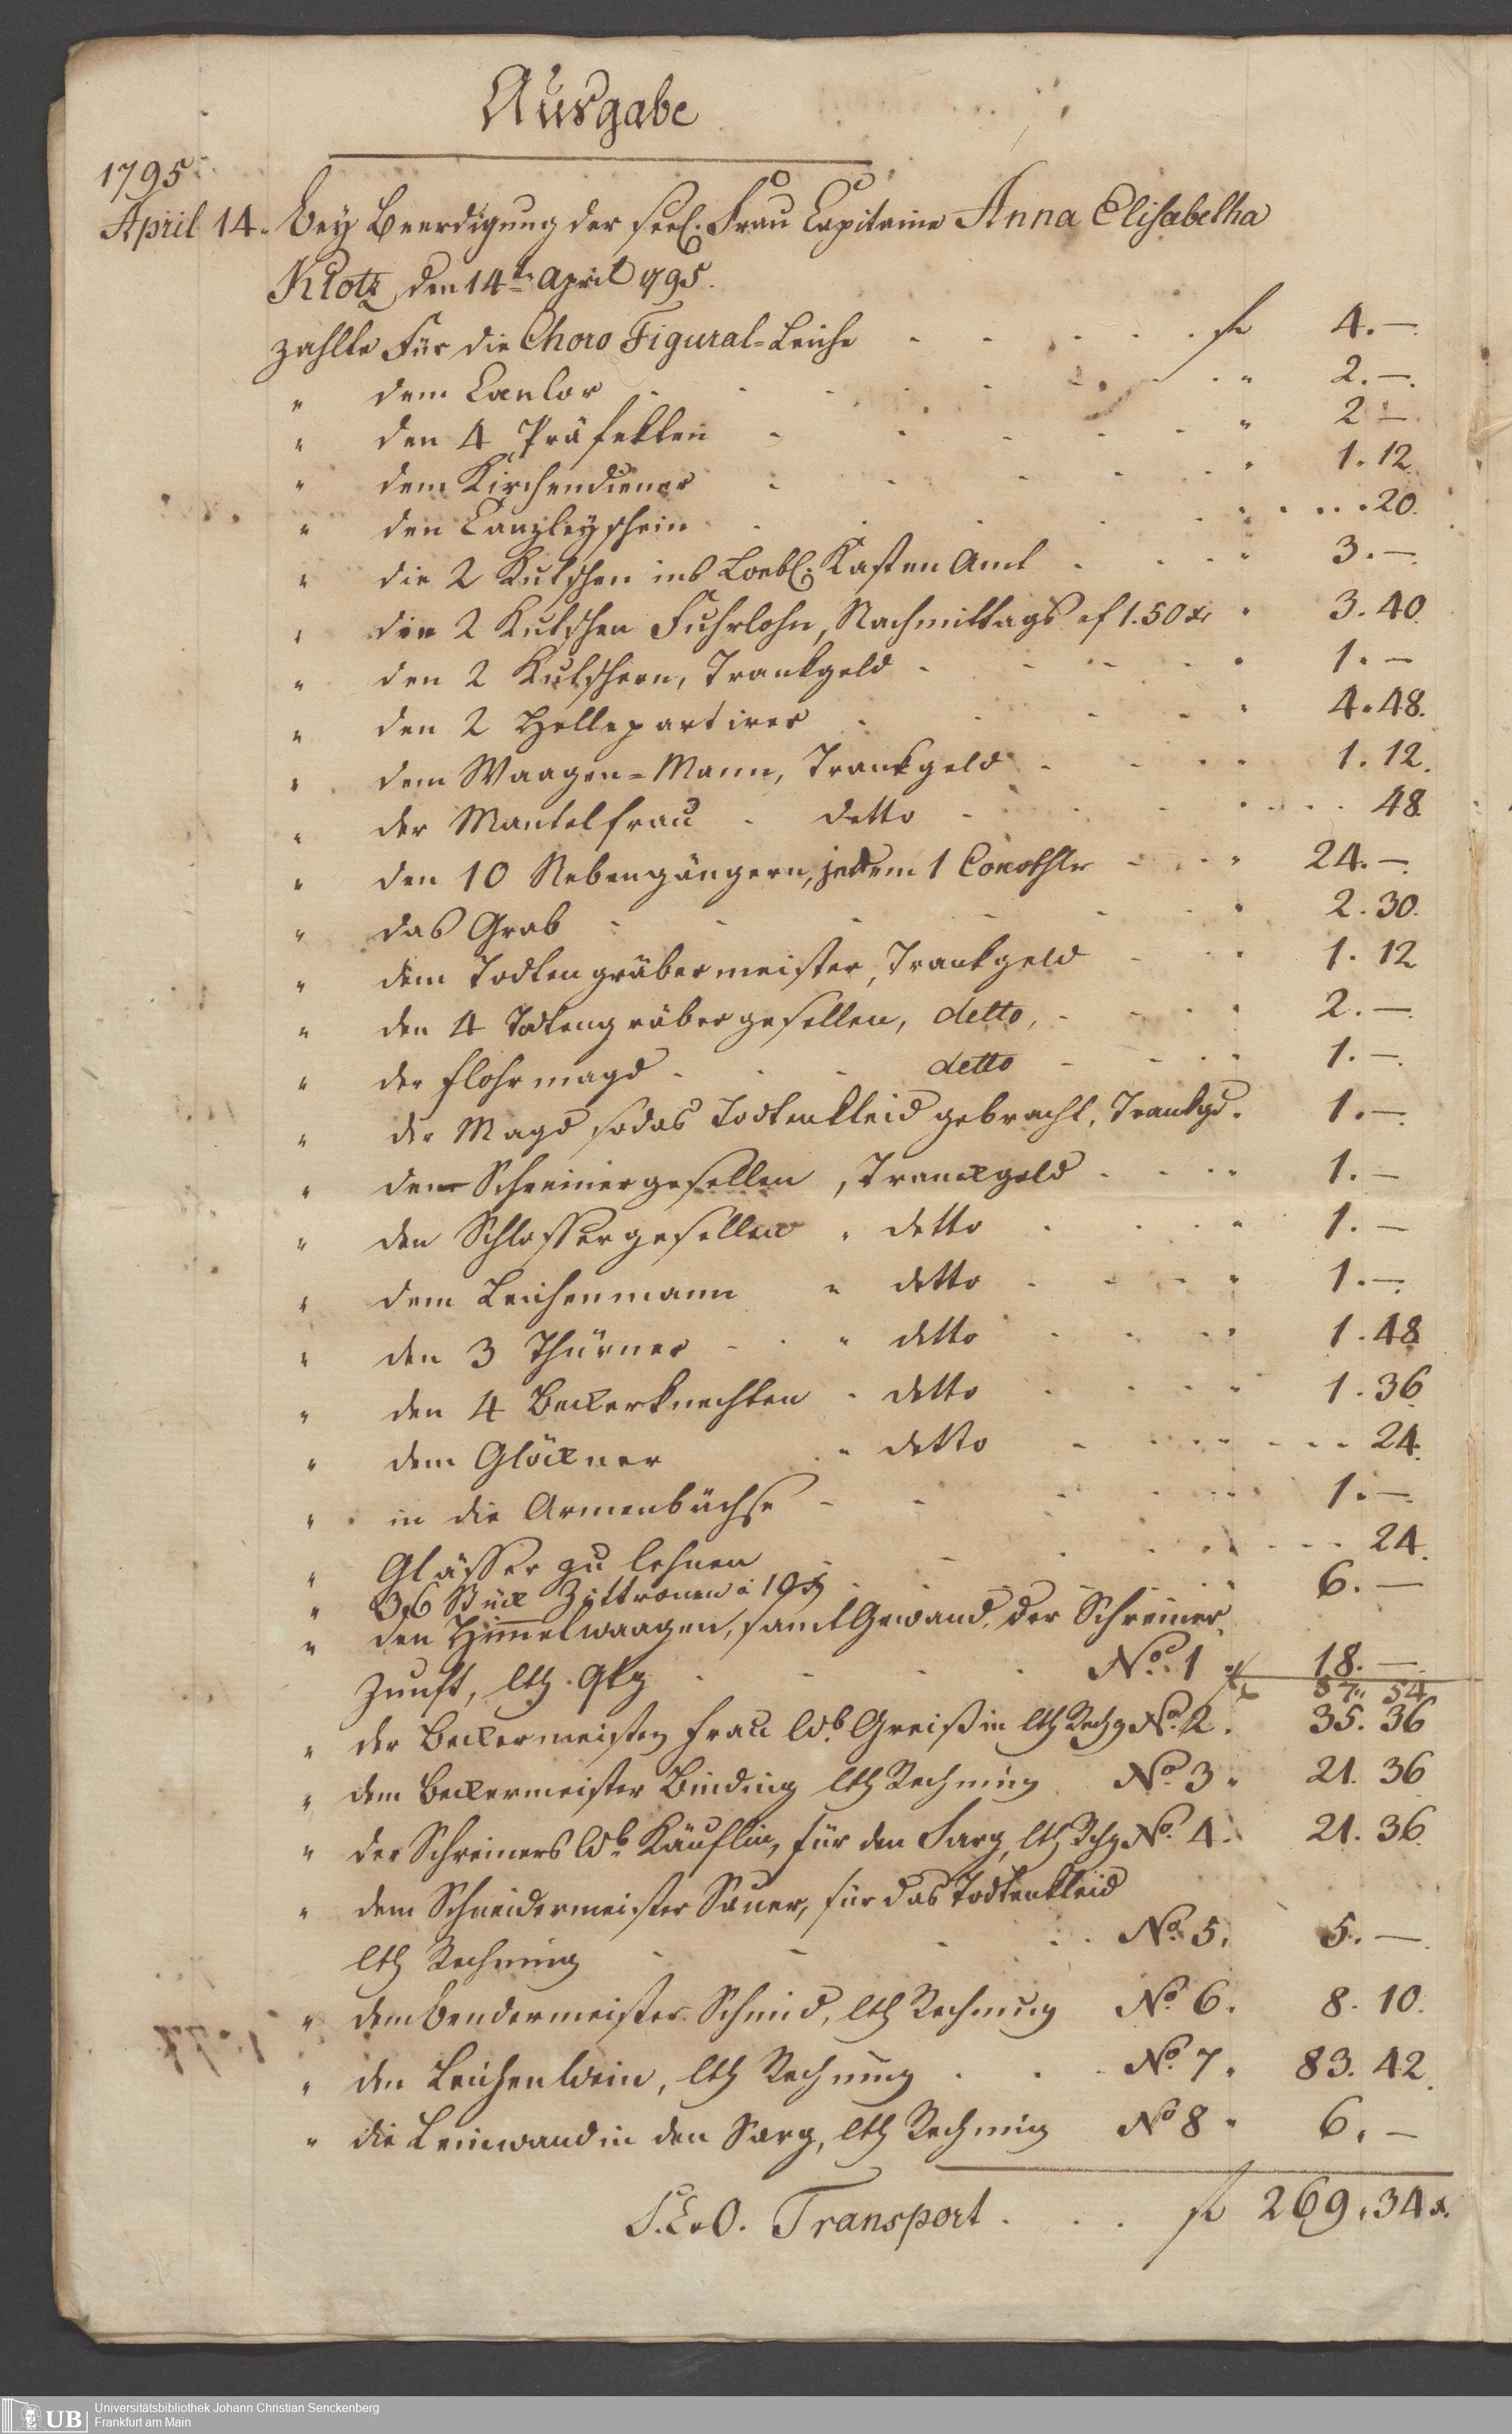 Ausgabe
1795
April 14. bey Beerdigung der seel. Frau Capitaine Anna Elisabetha
Klotz, den 14ten April 1795.
zahlte Für die Choro Figural-Leiche . . . . . fl 4. —.
" dem Cantor . . . . . . " 2. —.
" den 4 Präfekten . . . . . " 2 —
" dem Kirchendiener . . . . . " 1. 12.
" den Canzleyschein . . . . . " . . . 20.
" die 2 Kutschen ins Loebl. Kasten Amt . . . " 3. —.
" die 2 Kutschen Fuhrlohn, Nachmittags a f 1.50 xr " 3. 40.
" den 2 Kutschern, Trankgeld . . . . " 1. —
" den 2 Hellepartirer . . . . " 4. 48.
" dem Waagen=Mann, Trankgeld . . . " 1. 12.
" der Mantelfrau . detto . . . " . . . 48.
" den 10 Nebengängern, jedem 1 Conothlr . . " 24. —.
" das Grab . . . . . . " 2. 30.
" dem Todtengräbermeister, Trankgeld . . " 1. 12
" den 4 Todtengräbergesellen, detto, . . . " 2. —.
" der Flohrmagd . . . detto . . " 1. —.
" der Magd so das Todtenkleid gebracht, Trankgd. 1. —.
" den Schreinergesellen, Tranckgeld . . . " 1. —
" den Schlossergesellen " detto . . . " 1. —
" dem Leichenmann " detto . . . " 1. —.
" den 3 Thürner . . " detto . . . " 1. 48
" den 4 Beckerknechten . detto . . . " 1. 36.
" dem Glöckner . " detto . . . . . . 24.
" in die Armenbüchse . . . . " 1. —.
" Glässer zu lehnen . . . . . . . 24.
" 36 Stück Zittronen à 10 x . . . . " 6. —
" den Himmelwaagen, samt Gewand, der Schreiner
Zunft, lth . . . . No. 1 " 18. —.
fl 87. 54
" der Beckermeistern Frau Wb. Greißin lth Rechg No. 2. 35. 36
" dem Beckermeister Binding lth Rechnung No. 3 " 21. 36
" der Schreiners Wb. Käuflin, für den Sarg, lth Rchg No. 4. 21. 36.
" dem Schneidermeister Sauer, für das Todtenkleid
lth Rechnung . . . . . No. 5. 5. —.
" dem Bendermeister Schmid, lth Rechnung No. 6. 8. 10.
" den Leichenwein, lth Rechnung . . . No. 7. 83. 42.
" die Leinwand in den Sarg, lth Rechnung No 8 " 6. —
S.E.O. Transport . . . fl 269. 34 x.
UB Universitätsbibliothek Johann Christian Senckenberg
Frankfurt am Main